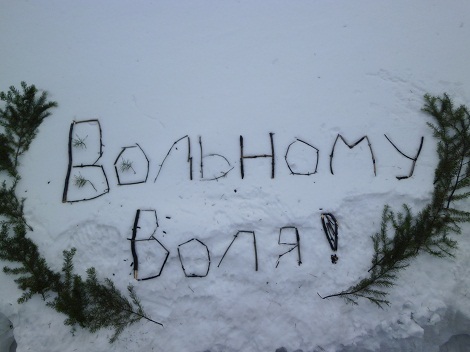 Вольному
Воля!